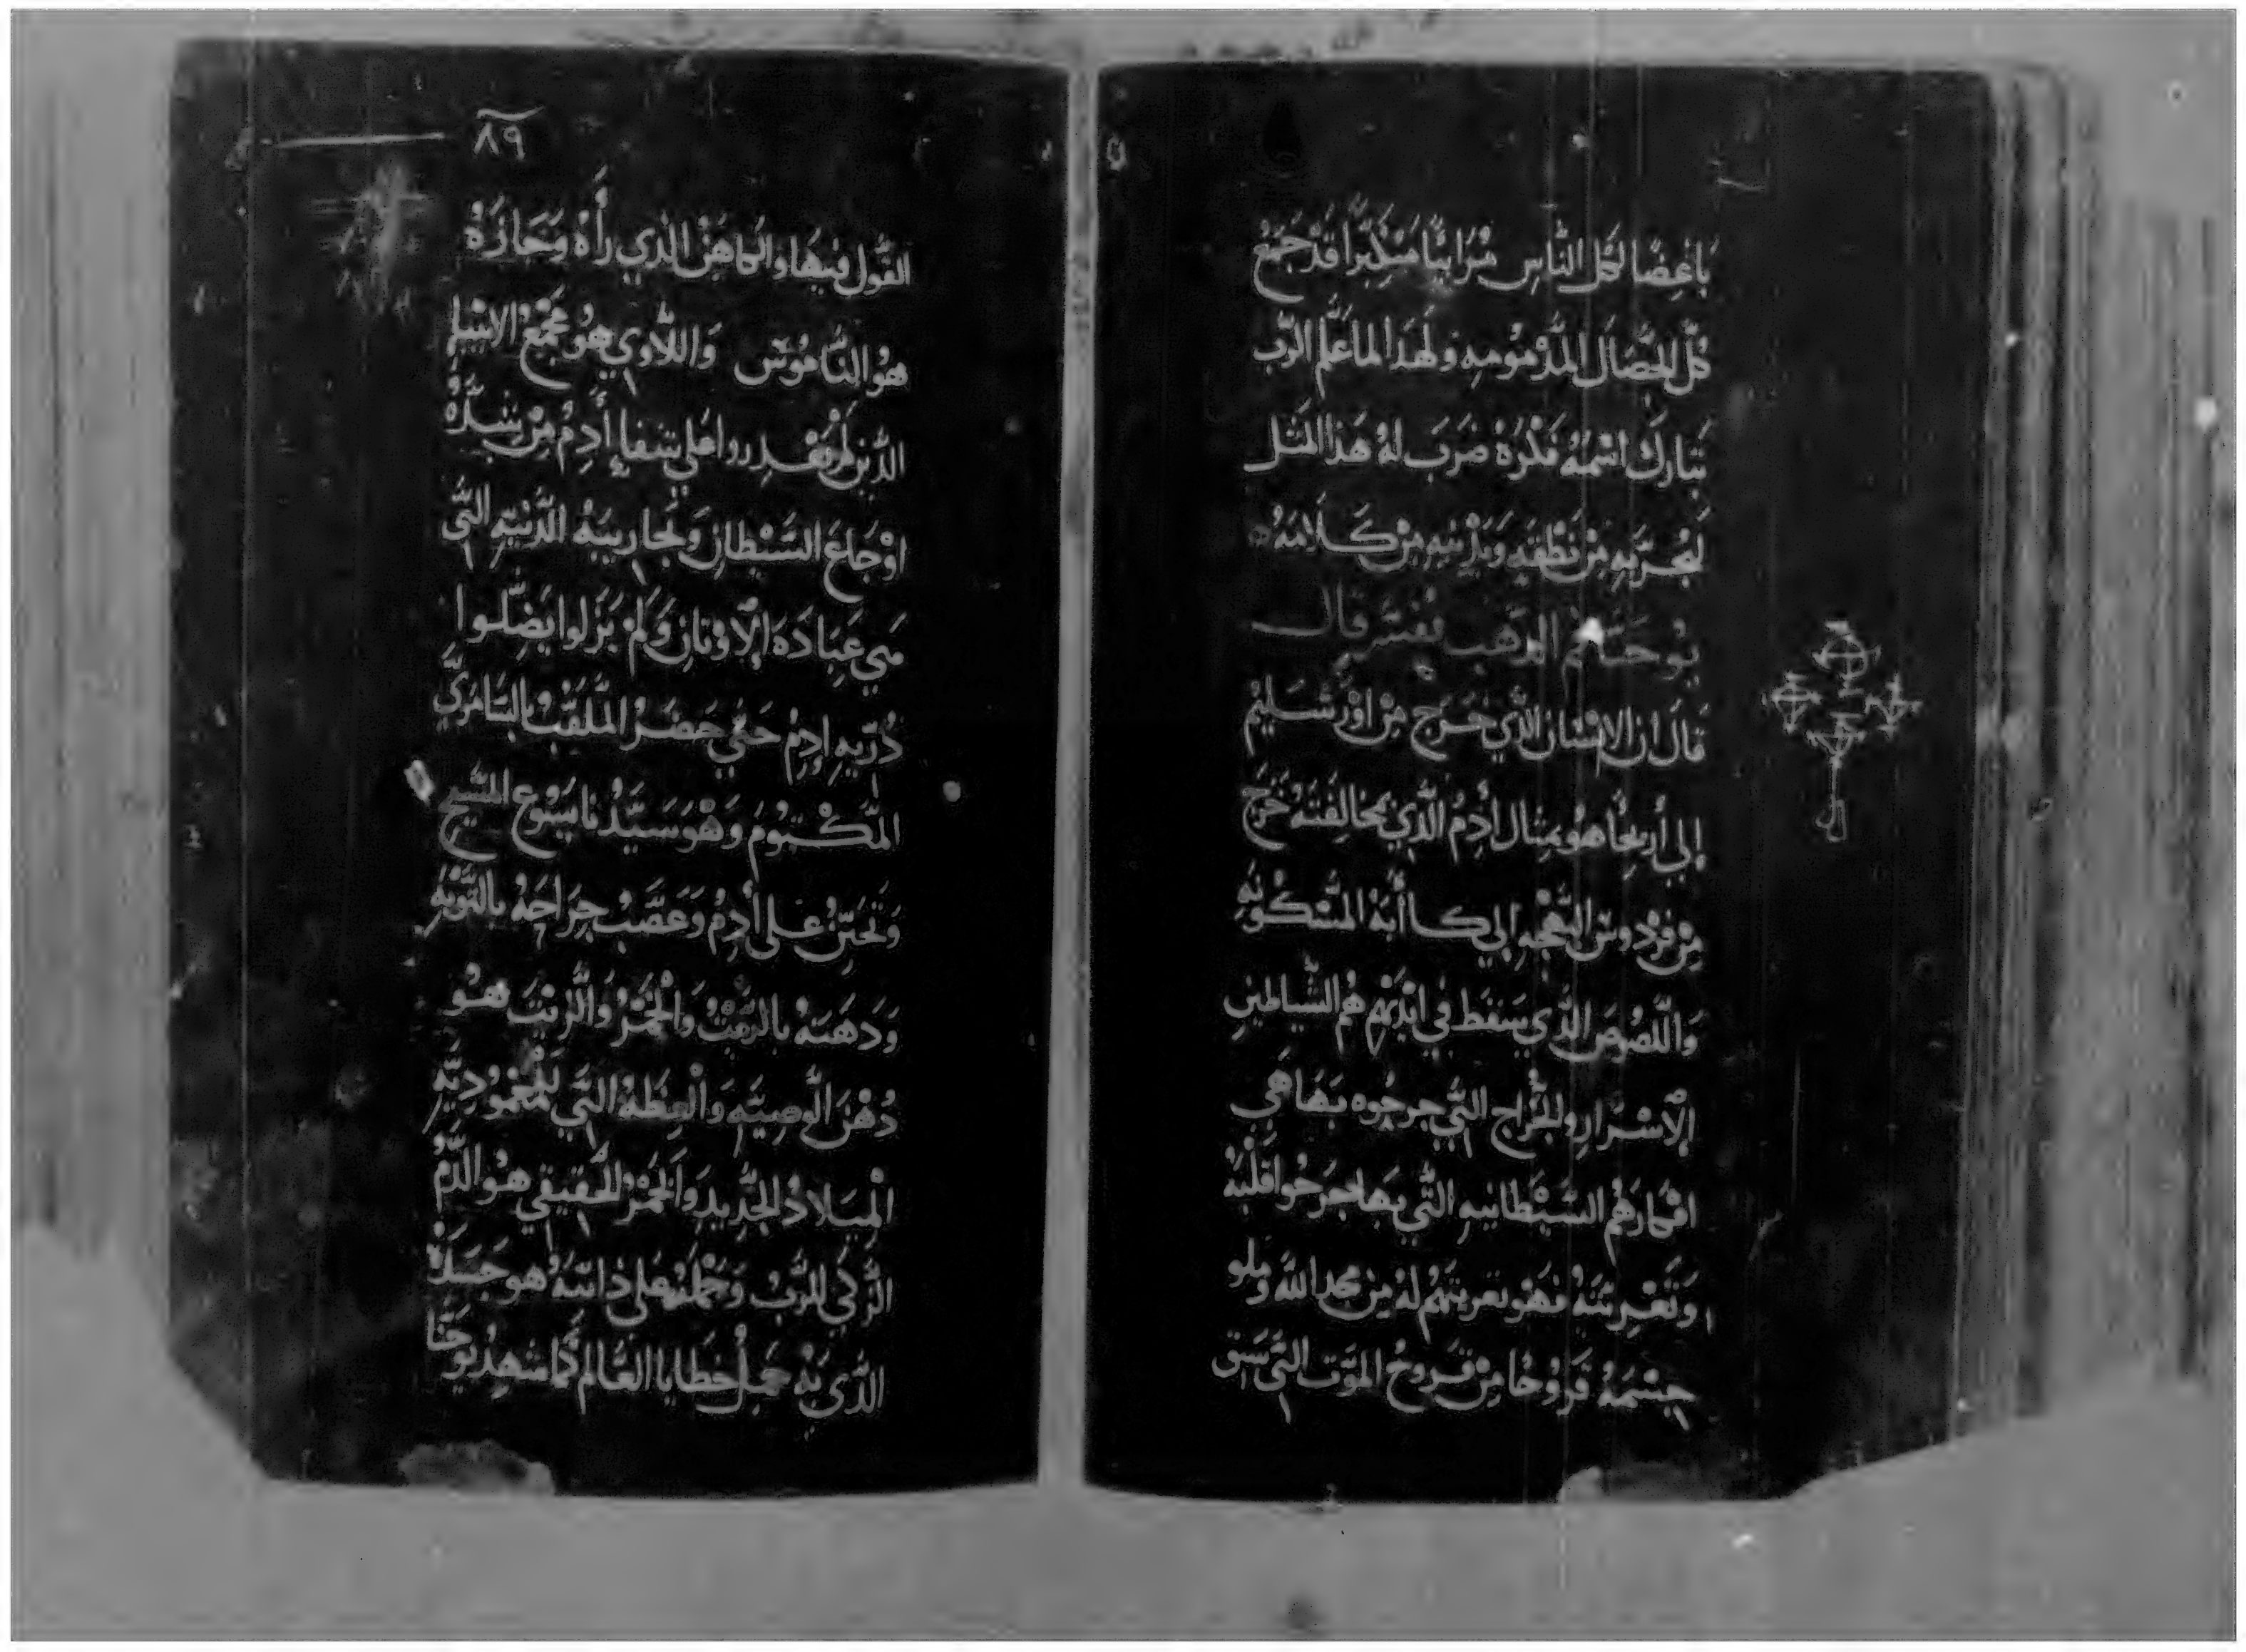 باغضًا لكل الناس مُرَائيًا متكبرًا قد جمع
كل الخصال المذمومه ولهذا لما علم الرب
تبارك اسمه فكره ضرب له هذا المثل
من نطقه من كلامه
يوحنا فم الذهب يفسر قال
قال ان الانسان الذي خرج من اورشليم
إلي أريحا هو مثال أدم الذي بمخالفته خرج
من فردوس البهجه إلي كاأبة المسكونه
واللصوص الذي سقط في ايديهم هم الشياطين
الاشرار والجراح التي جرحوه بها هي
افكارهم الشيطانيه التي بها جرحوا قلبه
وتعريتة فهو تعريتهم له من مجد الله وملو
جسمه قروحًا من قروح الموت التي
٨٩
القول فيها والكاهن الذي رأه وجازه
هو الناموس واللاوي هو مجمع الانبيا
الذين لم يقدروا علي شفا أدم من شدة
اوجاع الشيطان وتجاريبه الدنيه التي
هي عبادة الاوتان ولم يزلوا يضلوا
ذريه ادم حتي حضر الملقب بالسامري
المكتوم وهو سيدنا يسوع المسيح
وتحنن علي أدم وعصب جراحه بالتوبه
ودهنه بالزيت والخمر والزيت هو
دهن الوصيه والعظة التي لمعموديه
الميلاد الجديد والخمر الحقيقي هو الدم
الزكي للرب وحمله علي دابته هو جسده
الذي به حمل خطايا العالم كما شهد يوحنا